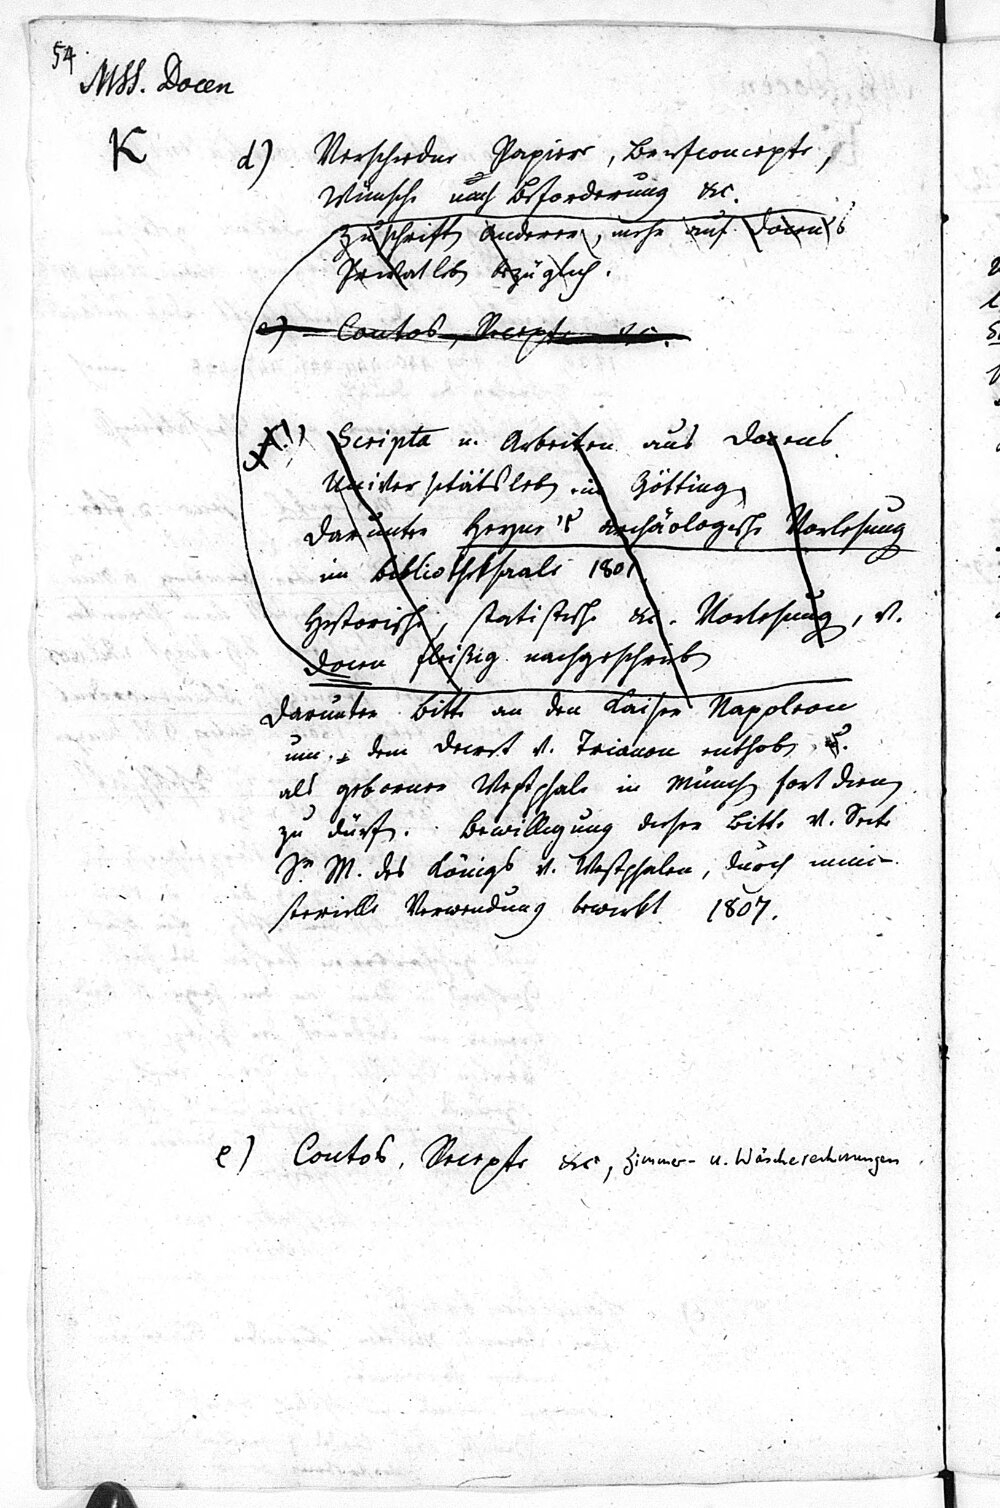 54
MSS. Docen
K
d) Verschiedne Papiere, Briefconcepte,
Wünsche nach Beförderung &c.
Zuschriften anderer, mehr auf Docen's
Privatleben bezüglich.
e) Contos, Recepte &c.
Scripta u. Arbeiten aus Docens
Universitätsleben in Göttingen
darunter Heyne's archäologische Vorlesung
im Bibliotheksaale 1801.
Historische, statistische &c. Vorlesungen, v.
Docen fleißig nachgeschrieben
Darunter Bitte an den Kaiser Napoleon
um dem Decret v. Trianon enthoben, u.
als geborner Westphale in München fort dienen
zu dürfen. Bewilligung dieser Bitte v. Seite
Sr M. des Königs v. Westphalen, durch mini-
sterielle Verwendung bewirkt 1807.
e) Contos, Recepte &c., Zimmer- u. Wäscherechnungen